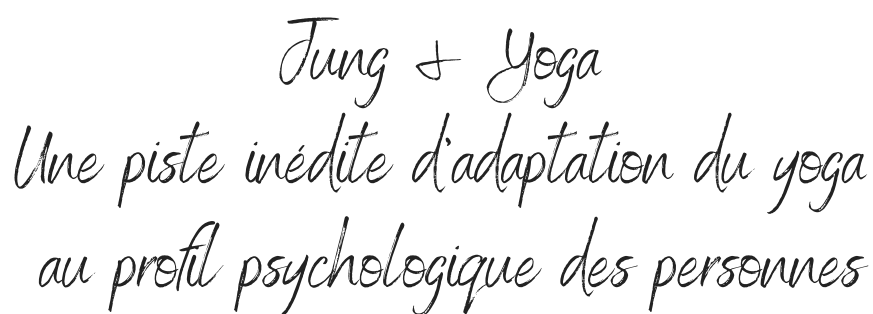 Jung & Yoga
Une piste inédite d'adaptation du yoga
au profil psychologique des personnes